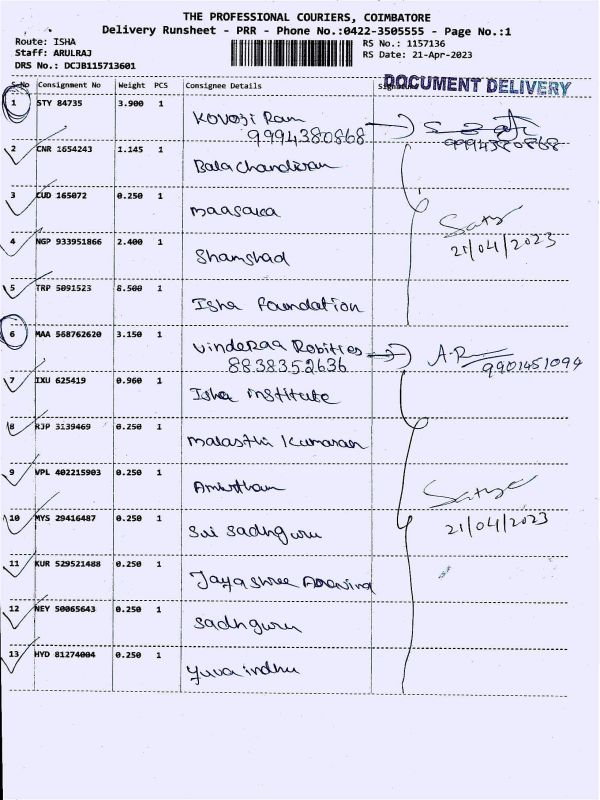 THE PROFESSIONAL COURIERS, COIMBATORE
Delivery Runsheet - PRR - Phone No.:0422-3505555 - Page No.:1
Route: ISHA RS No.: 1157136
Staff: ARULRAJ RS Date: 21-Apr-2023
DRS No.: DCJB115713601
DOCUMENT DELIVERY
S.No Consignment No Weight PCS Consignee Details
1 STY 84735 3.900 1 Kovoji Ram
9994380868 9994380868
2 CNR 1654243 1.145 1 Bala Chanderan
3 CUD 165072 0.250 1 Maasaka
Satya
21/04/2023
4 NGP 933951866 2.400 1 Shamshad
5 TRP 5091523 8.500 1 Isha Foundation
6 MAA 568762620 3.150 1 Vinderaa Robities A.R
8838352636 9901451094
7 IXU 625419 0.960 1 Isha institute
8 RJP 3139469 0.250 1 Malasthi Kumaran
9 VPL 402215903 0.250 1 Amirtham
Satya
21/04/2023
10 MYS 29416487 0.250 1 Sri Sadhguru
11 KUR 529521488 0.250 1 Jayashree Aravind
12 NEY 50065643 0.250 1 Sadhguru
13 HYD 81274004 0.250 1 Yuva indhu